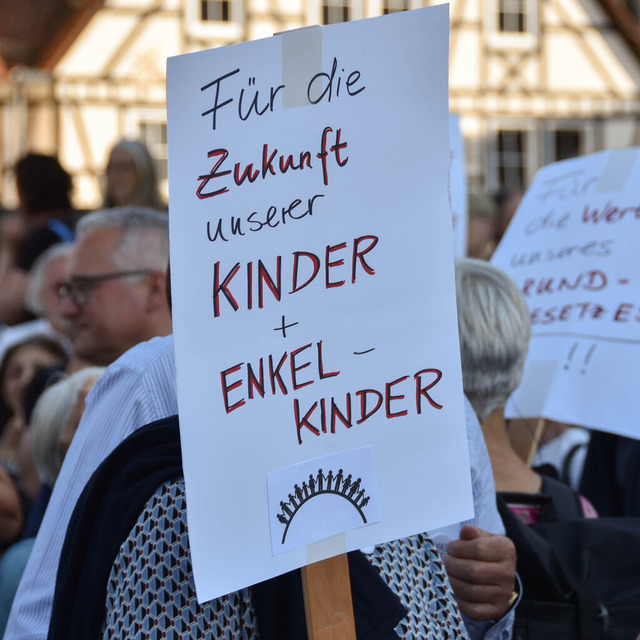 Für die
Zukunft
unserer
KINDER
+
ENKEL-
KINDER
Für
die Wert
unseres
RUND-
ESETZES
!!